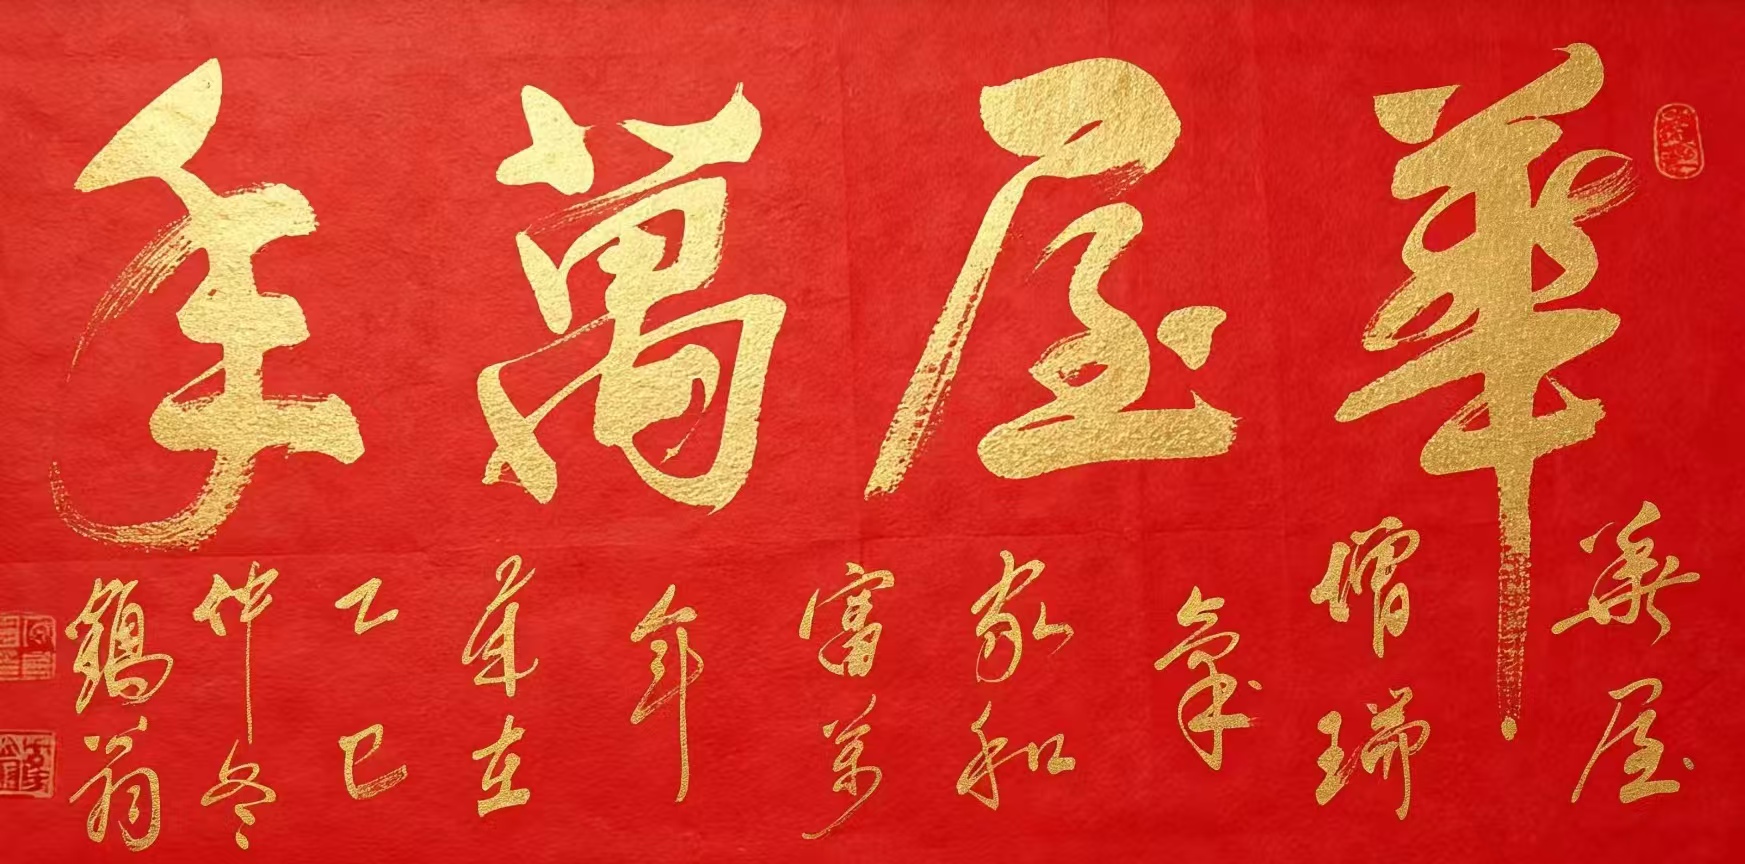 華屋萬年
華屋
增瑞
氣
家和
富萬
年
歲在
乙巳
仲冬
鶴翁